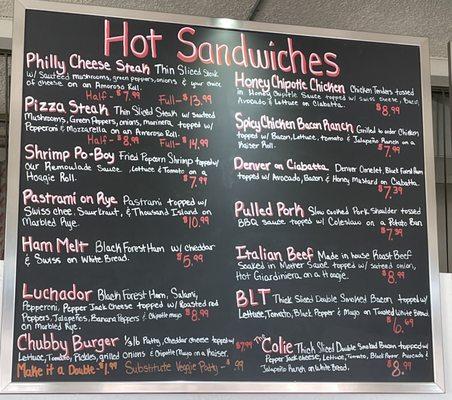 Hot Sandwiches
Philly Cheese Steak Thin Sliced Steak
w/ Sauteed mushrooms, green peppers, onions & your choice
of cheese on an Amoroso Roll.
Half - $7.99 Full - $13.99
Pizza Steak Thin Sliced Steak w/ sauteed
Mushrooms, Green Peppers, onions, marinera, topped w/
Pepperoni & Mozzarella on an Amoroso Roll.
Half - $8.99 Full - $14.99
Shrimp Po-Boy Fried Popcorn Shrimp topped w/
our Remoulade Sauce, Lettuce & Tomato on a
Hoagie Roll. $7.99
Pastrami on Rye Pastrami topped w/
Swiss chee, Saurkraut, & Thousand Island on
Marbled Rye. $10.99
Ham Melt Black Forest Ham, w/ cheddar
& Swiss on White Bread. $5.99
Luchador Black Forest Ham, Salami,
Pepperoni, Pepper Jack Cheese topped w/ Roasted red
Peppers, Jalapeños, Banana Peppers & Chipotle mayo $8.99
on Marbled Rye.
Chubby Burger 1/3 lb Patty, Cheddar cheese topped w/ $7.99
Lettuce, Tomato, Pickles, grilled Onions & Chipotle Mayo on a Kaiser.
Make it a Double - $1.99 Substitute Veggie Patty - .99
Honey Chipotle Chicken Chicken Tenders tossed
in Honey Chipotle Sauce topped w/ swiss cheese, Bacon,
Avocado & Lettuce on Ciabatta. $8.99
Spicy Chicken Bacon Ranch Grilled to order Chicken
topped w/ Bacon, Lettuce, tomato & Jalapeño Ranch on a
Kaiser Roll. $7.99
Denver on Ciabatta Denver Omelet, Black Forest Ham
topped w/ Avocado, Bacon & Honey Mustard on Ciabatta.
$7.39
Pulled Pork Slow cooked Pork Shoulder tossed
BBQ sauce topped w/ Coleslaw on a Potato Bun.
$7.39
Italian Beef Made in house Roast Beef
Soaked in Mother Sauce topped w/ sateed onion,
Hot Giardiniera, on a Hoagie. $8.99
BLT Thick Sliced Double Smoked Bacon topped w/
Lettuce, Tomato, Black Pepper & Mayo on Toasted White Bread.
$6.69
The Colie Thick Sliced Double Smoked Bacon topped w/
Pepper Jack cheese, Lettuce, Tomato, Black Pepper, Avocado &
Jalapeño Ranch on White Bread. $8.99